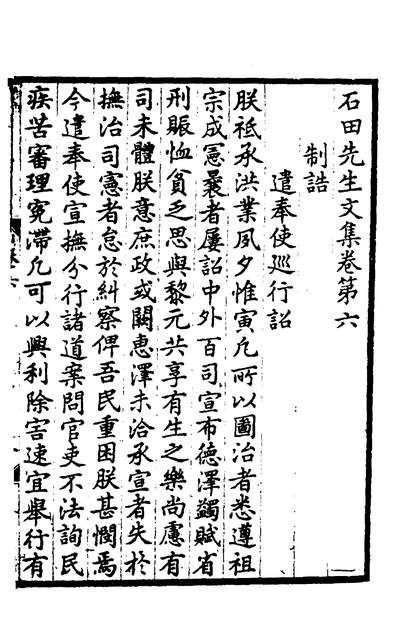 石田先生文集卷第六
制誥
遣奉使巡行詔
朕祗承洪業夙夕惟寅凡所以圖治者悉遵祖
宗成憲曩者屢詔中外百司宣布德澤蠲賦省
刑賑恤貧乏思與黎元共享有生之樂尚慮有
司未體朕意庶政或闕惠澤未洽承宣者失於
撫治司憲者怠於糾察俾吾民重困朕甚憫焉
今遣奉使宣撫分行諸道案問官吏不法詢民
疾苦審理冤滯凡可以興利除害速宜舉行有